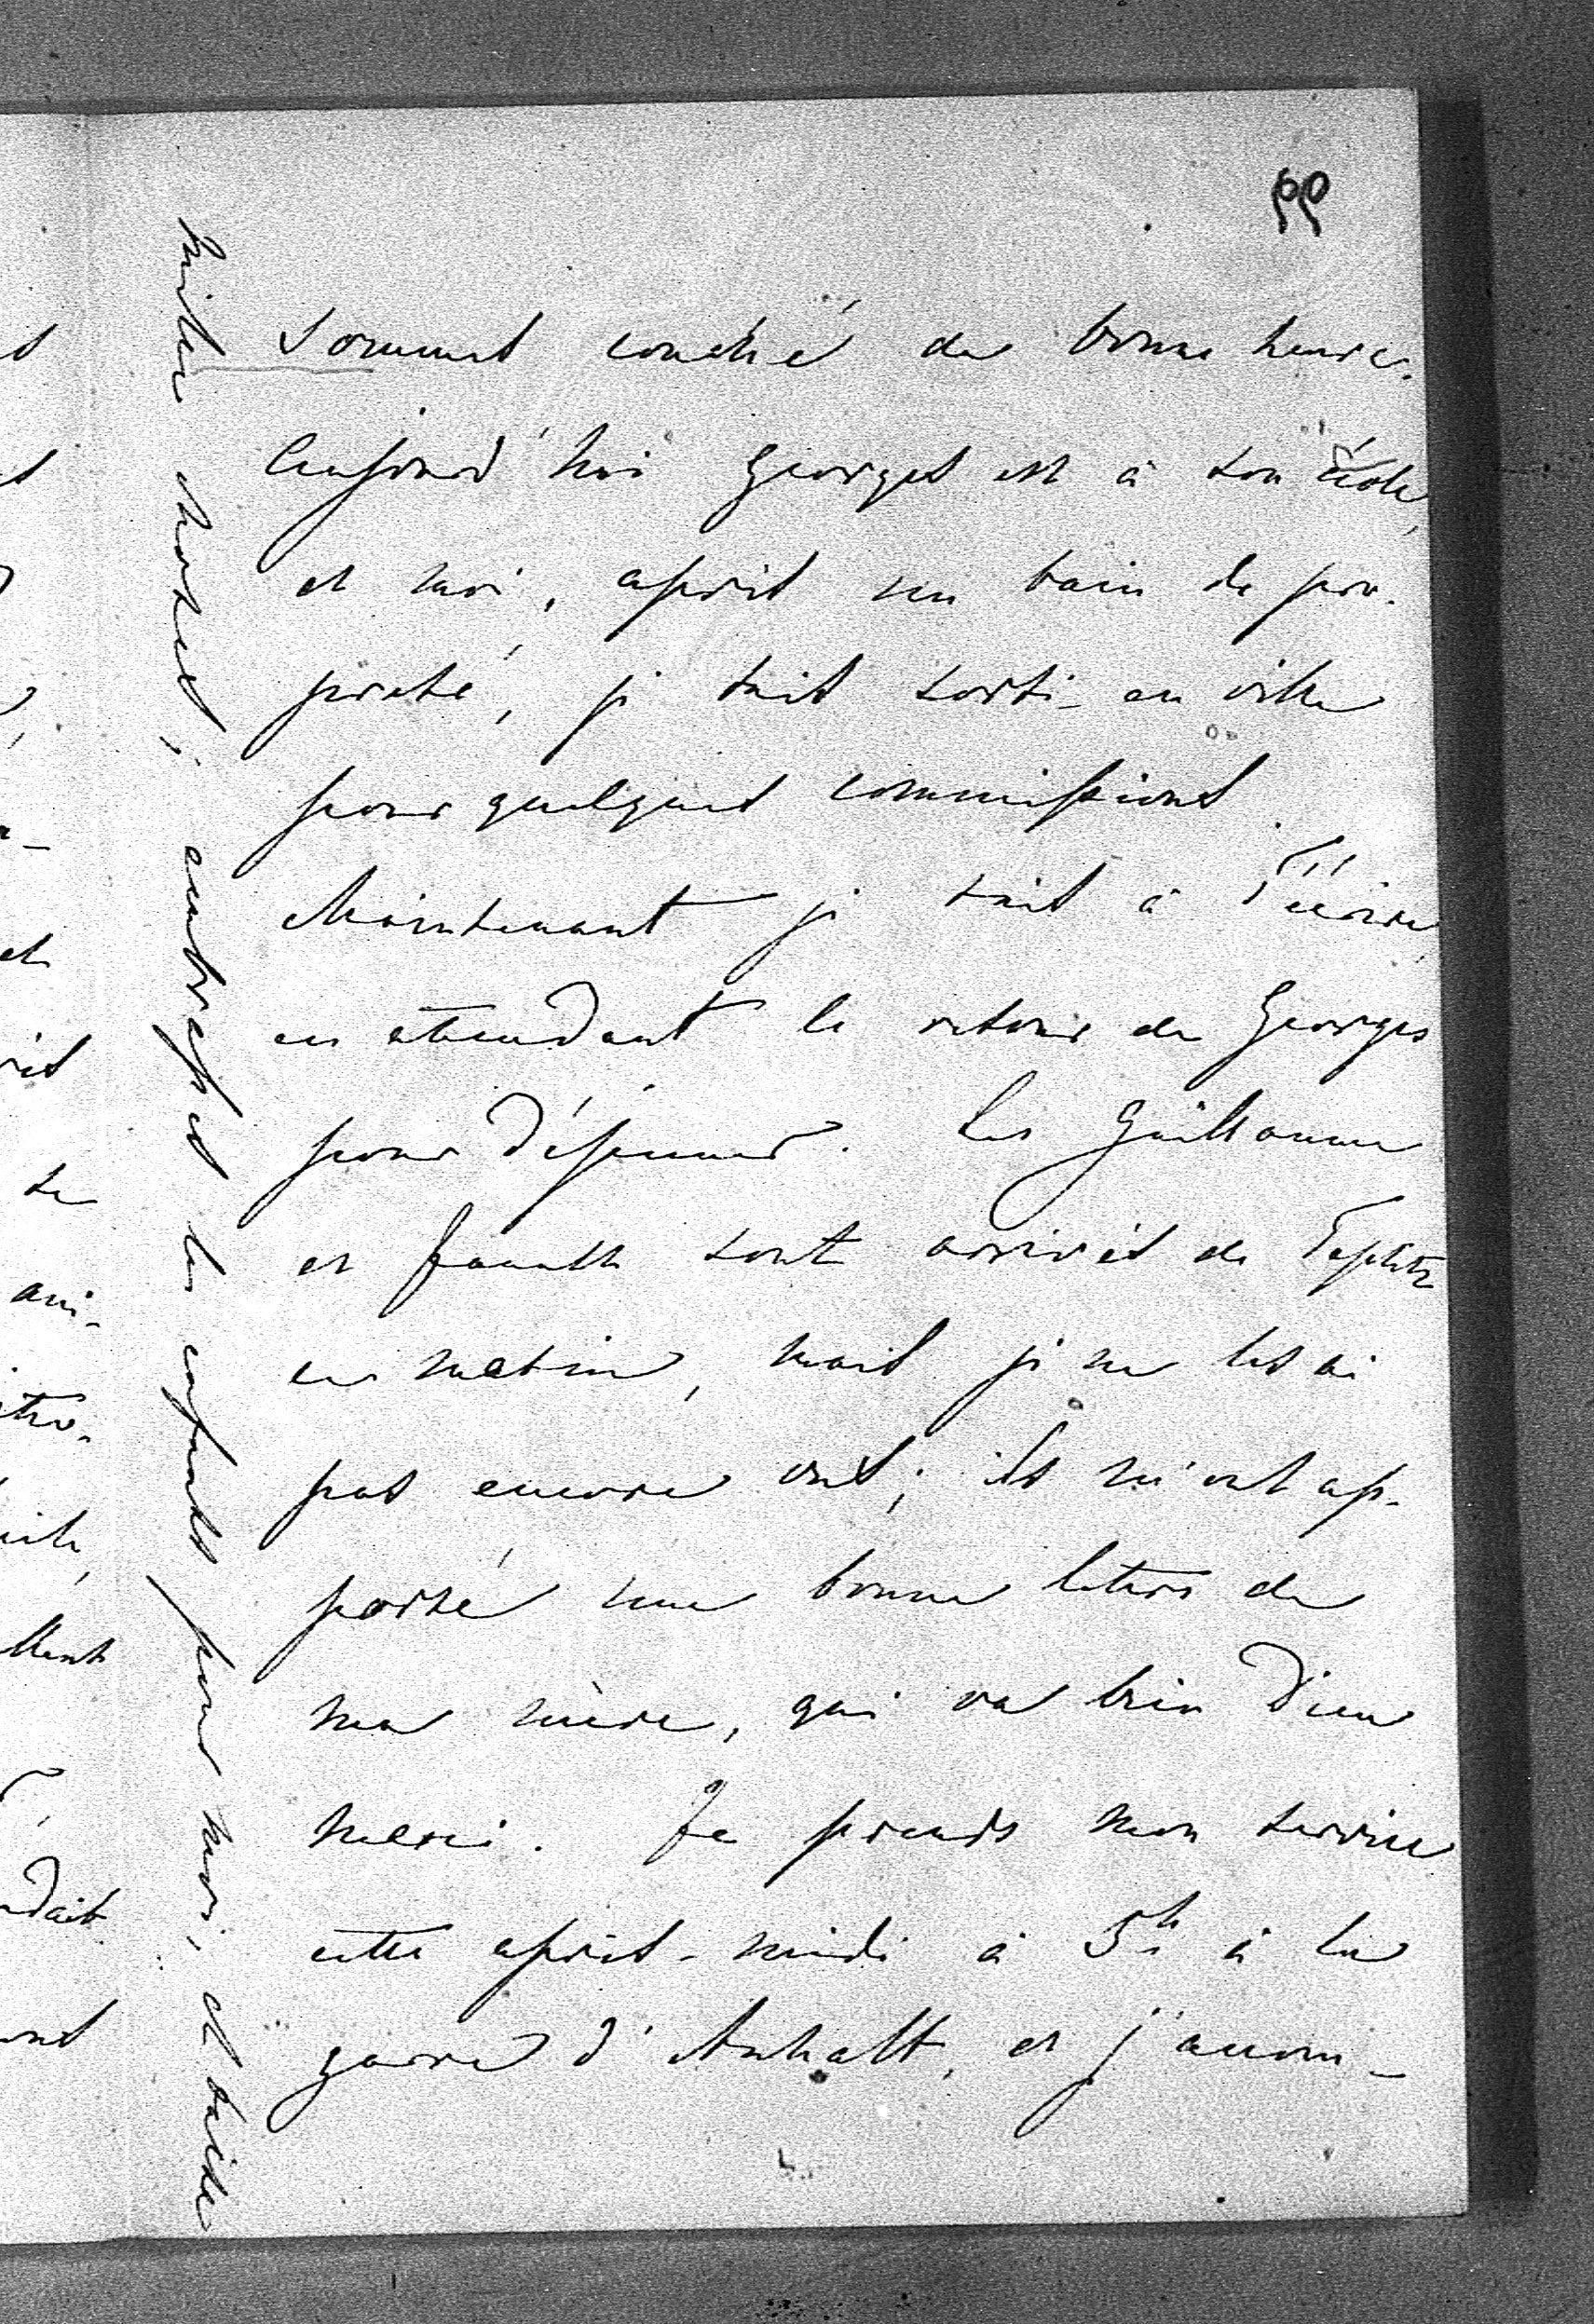 99
sommes couché de bonne heure.
Aujourd'hui Georges est à son école,
et moi, après un bain de pro-
preté, je suis sorti en ville
pour quelques commissions.
Maintenant je suis à t'écrire,
en attendant le retour de Georges
pour déjeuner. Les Guillaume
et famille sont arrivés de Teplitz
ce matin, mais je ne les ai
pas encore vus; ils m'ont ap-
porté une bonne lettre de
ma mère, qui va bien Dieu
merci. Je prends mon service
cette après-midi à 5h à la
gare d'Anhalt, et j'accom-
embrasses les enfants pour moi, et